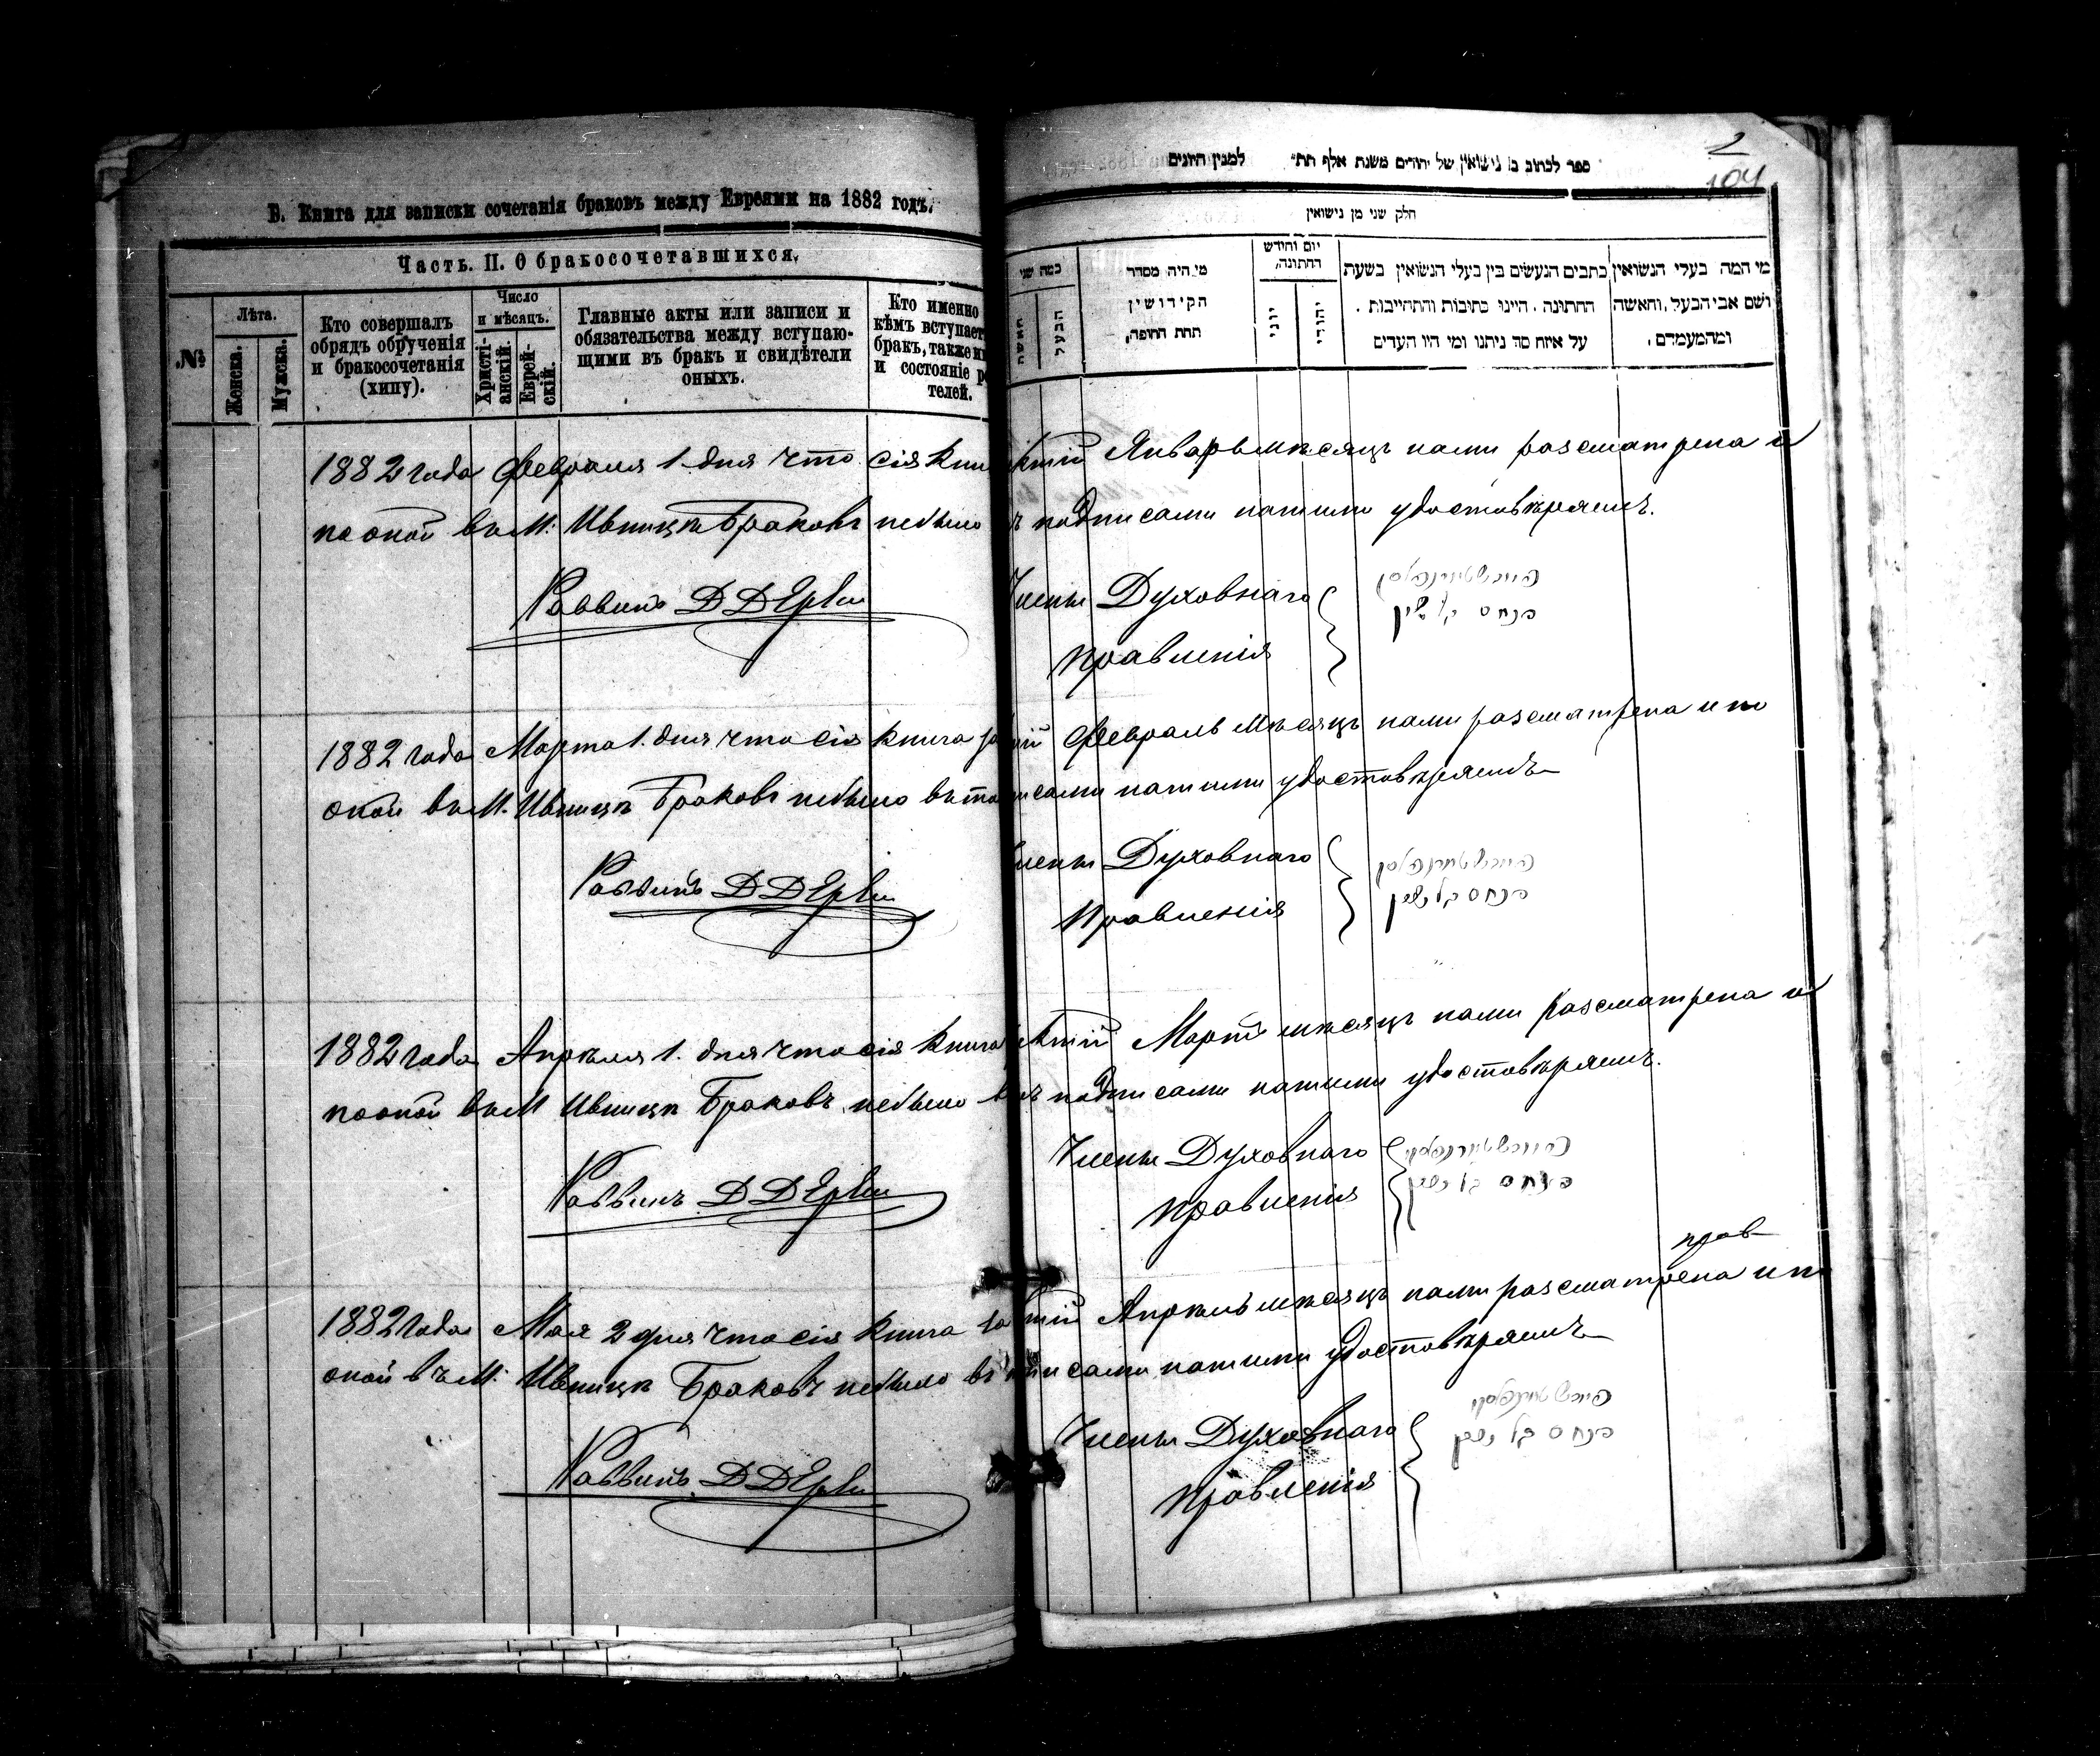 В. Книга для записки сочетанія браковъ между Евреями на 1882 годъ.
Часть. II. О бракосочетавшихся.
.№
Лѣта.
Женска.
Мужска.
Кто совершалъ
обрядъ обрученія
и бракосочетанія
(хипу).
Число
и мѣсяцъ.
Христі-
анскій.
Еврей-
скій.
Главные акты или записи и
обязательства между вступаю-
щими въ бракъ и свидѣтели
оныхъ.
Кто именно
кѣмъ вступает
бракъ, также
и состояніе р
телей.
2
104
ספר לכתוב בו נישואין של יהודים משנת אלף תת״ למנין היונים
חלק שני מן נישואין
כמה שני
האשה
הבעל
מי היה מסדר
הקידושין
תחת החופה,
יום וחודש
החתונה,
יוני
יהודי
כתבים הנעשים בין בעלי הנשואין בשעת
החתונה, היינו כתובות והתחייבות,
על איזה סך ניתנו ומי היו העדים
מי המה בעלי הנשואין
ושם אבי הבעל, והאשה
ומהמעמדם,
1882 года Февраля 1. дня что сія Кни ктій Январь мѣсяцъ нами разсматрена и
по оной въ М: Ивницѣ Браковъ небыло ъ подписами нашими удостовѣряемъ.
Раввинъ Д Д
Члены Духовнаго
Правленія
פנחס
1882 года Марта 1. дня что сія Книга за ій Февраль мѣсяцъ нами разсматрена и по
оной въ М. Ивницѣ Браковъ небыло въ то исами нашими удостовѣряемъ
Раввинъ Д Д
Члены Духовнаго
Правленія
פנחס
1882 года Апрѣля 1. дня что сія Книга ктій Мартъ мѣсяцъ нами разсматрена и
по оной въ М Ивницѣ Браковъ небыло въ подписами нашими удостовѣряемъ.
Раввинъ Д Д
Члены Духовнаго
Правленія
פנחס
прав
1882 года Мая 2 дня что сія Книга за тій Апрѣль мѣсяцъ нами разсматрена и по
оной въ М: Ивницѣ Браковъ небыло въ писами нашими удостовѣряемъ
Раввинъ Д Д
Члены Духовнаго
Правленія
פנחס